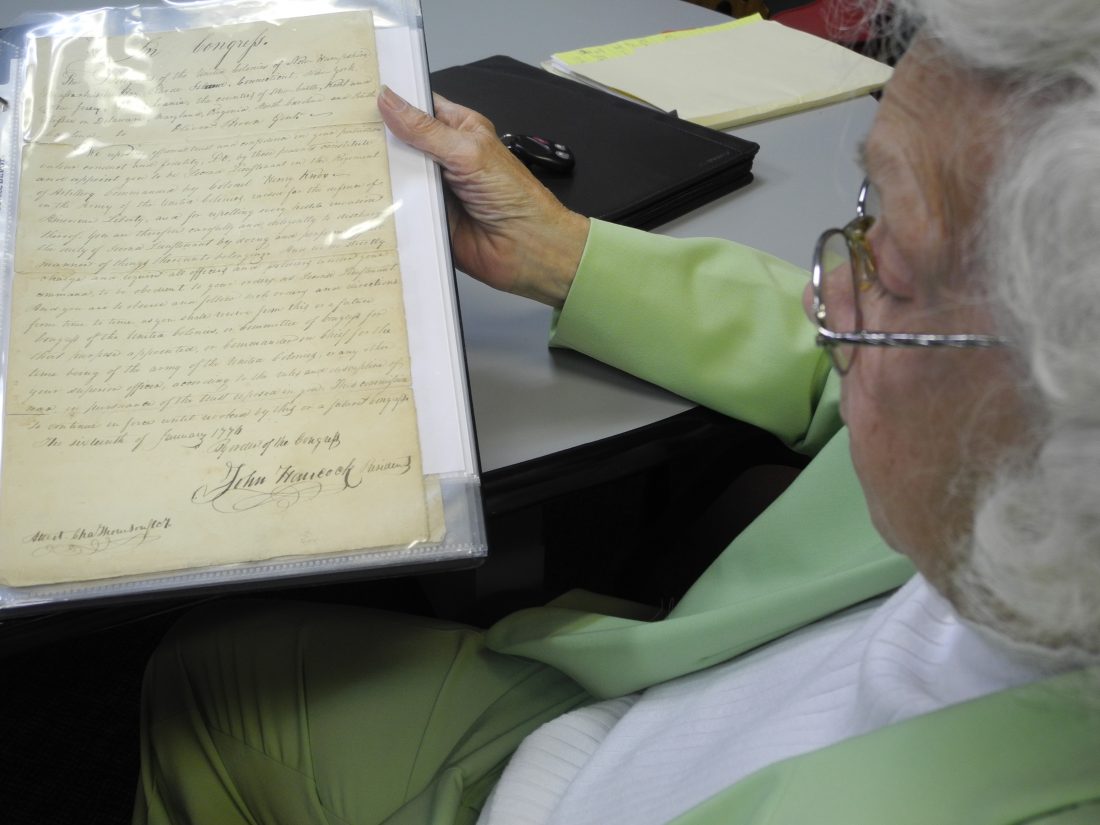 In Congress.
The Delegates of the United Colonies of New Hampshire
Rhode Island, Connecticut, New York
New Jersey, Pennsylvania, the counties of New Castle, Kent and
Sussex on Delaware, Maryland, Virginia, North Carolina and South
Carolina to
We reposing especial trust and confidence in your patriotism
valour conduct and fidelity, Do by these presents constitute
and appoint you to be Second Lieutenant in the Regiment
of Artillery Commanded by Colonel Henry Knox
in the Army of the United Colonies, raised for the defence of
American Liberty, and for repelling every hostile invasion
thereof. You are therefore carefully and diligently to discharge
the duty of Second Lieutenant by doing and performing all
manner of things thereunto belonging. And we do strictly
charge and require all officers and soldiers under your
command, to be obedient to your orders as Second Lieutenant
And you are to observe and follow such orders and directions
from time to time as you shall receive from this or a future
Congress of the United Colonies, or committee of Congress for
that purpose appointed, or Commander in Chief for the
time being of the army of the United Colonies, or any other
your superior officer, according to the rules and discipline of
war in pursuance of the trust reposed in you. This commission
to continue in force until revoked by this or a future Congress
The sixteenth of January 1776
By order of the Congress
John Hancock President
Attest Cha Thomson Secy